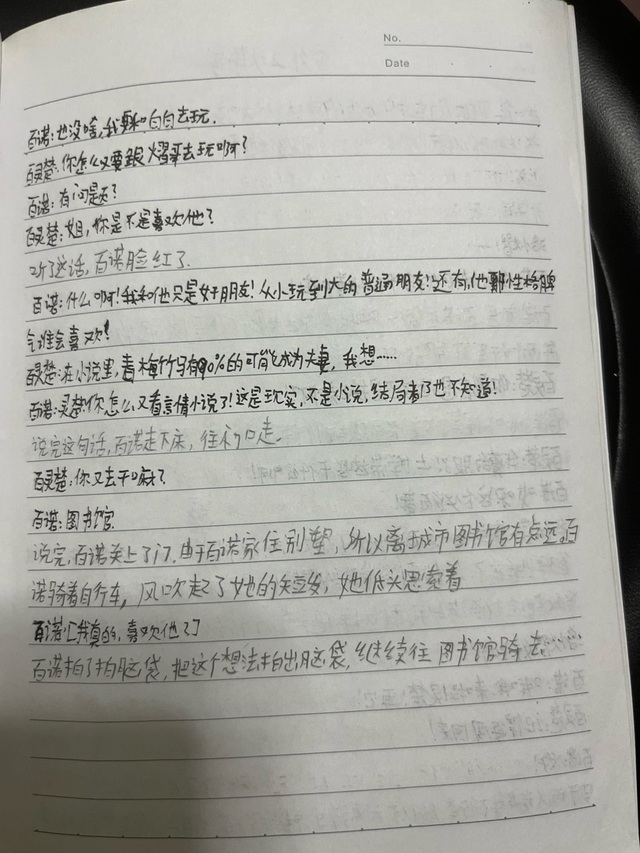 No.
Date
百诺:也没啥,我要和白白去玩.
百灵楚:你怎么又要跟熠来去玩啊?
百诺:有问题?
百灵楚:姐,你是不是喜欢他?
听了这话,百诺脸红了.
百诺:什么啊!我和他只是好朋友!从小玩到大的普通朋友!还有,他那性格脾
气谁会喜欢!
百灵楚:在小说里,青梅竹马有90%的可能成为夫妻,我想……
百诺:灵楚你怎么又看言情小说了!这是现实,不是小说,结局都也不知道!
说完这句话,百诺走下床,往门口走.
百灵楚:你又去干嘛?
百诺:图书馆.
说完,百诺关上了门.由于百诺家住别墅,所以离城市图书馆有点远。百
诺骑着自行车,风吹起了她的短发,她低头思索着
百诺[我真的,喜欢他?]
百诺拍了拍脑袋,把这个想法拍出脑袋,继续往图书馆骑去.